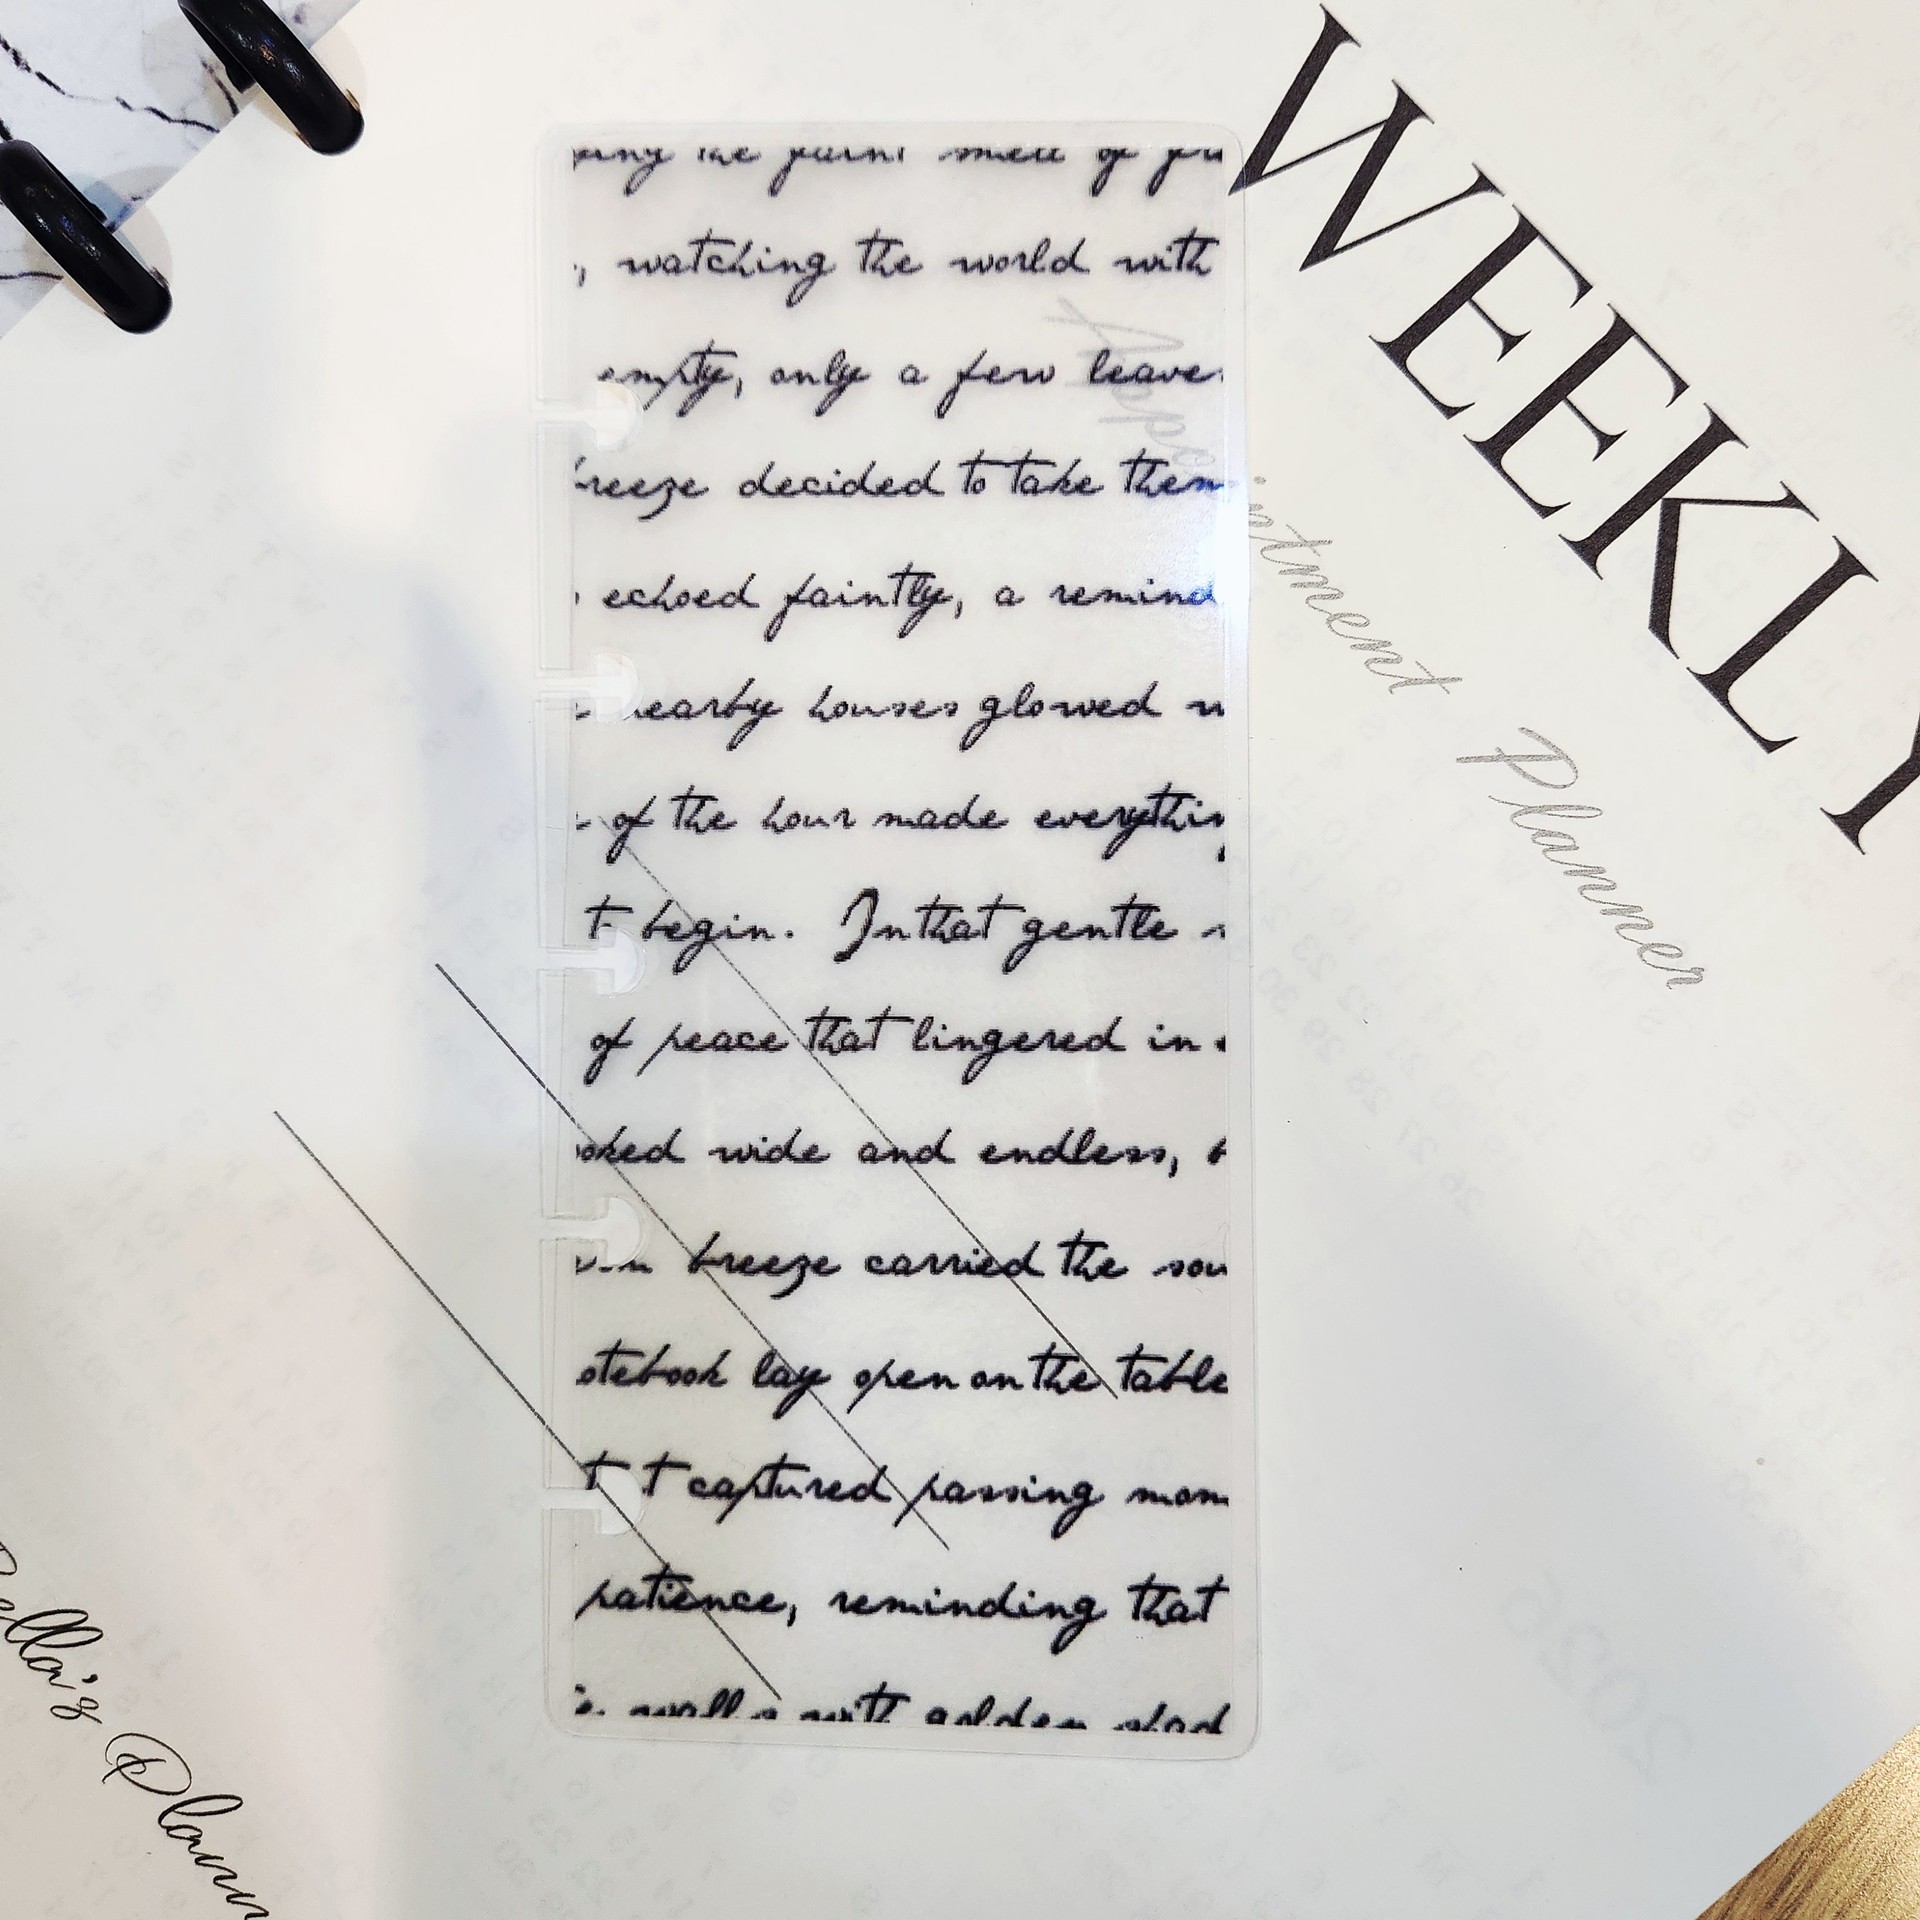 the faint smell of
, watching the world with
empty, only a few leave
reeze decided to take them
echoed faintly, a remind
nearby houses glowed w
of the hour made everythin
t begin. In that gentle
of peace that lingered in
oked wide and endless, b
breeze carried the sou
otebook lay open on the table
t captured passing mom
patience, reminding that
walls with golden shad
WEEKLY
Appointment Planner
ella's Plann